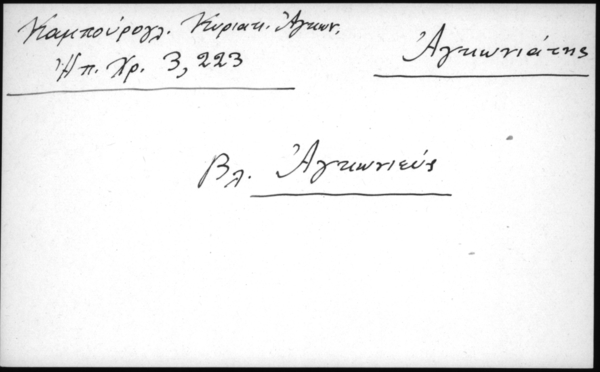 Καμπούρογλ. Κυριακ. Ἀγκων.
Ἠπ. Χρ. 3, 223
Ἀγκωνιάτης
Βλ. Ἀγκωνιεύς